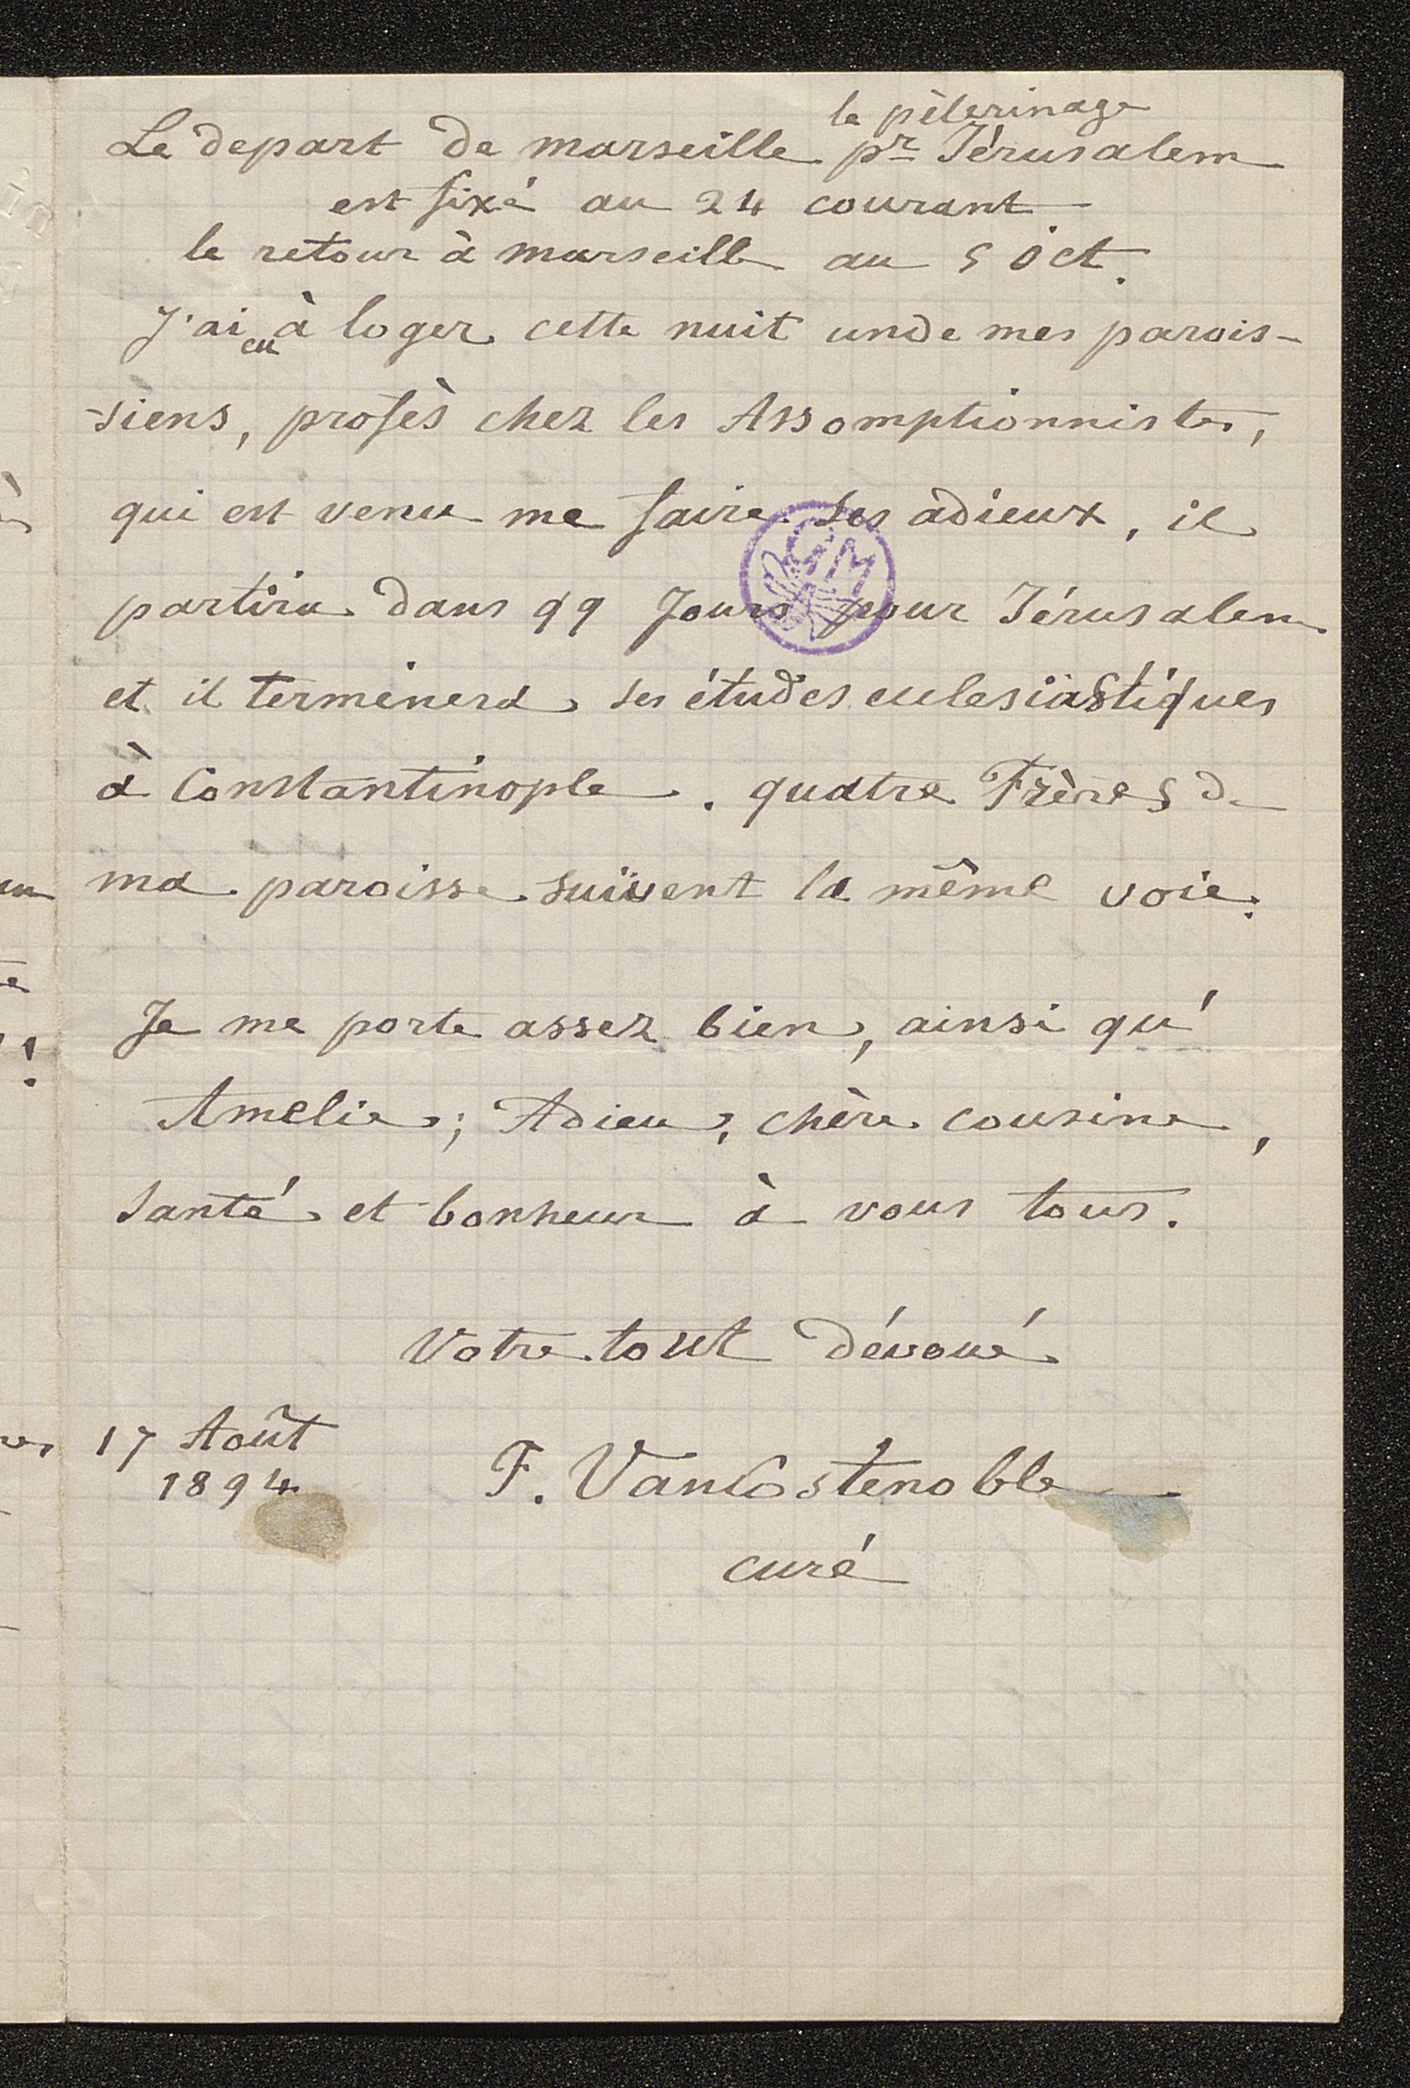 le pèlerinage
Le depart de marseille pr Jérusalem
est fixé au 24 courant
le retour à marseille au 5 oct.
J'ai eu à loger cette nuit un de mes parois-
-siens, profès chez les Assomptionnistes,
qui est venu me faire ses adieux, il
partira dans qq Jours pour Jérusalem
et il terminera ses études eclesiastiques
à Constantinople. quatre Frères de
ma paroisse suivent la même voie.
Je me porte assez bien, ainsi qu'
Amelie; Adieu, chère cousine,
santé et bonheur à vous tous.
Votre tout dévoué
17 Août
1894
F. VanCostenoble
curé